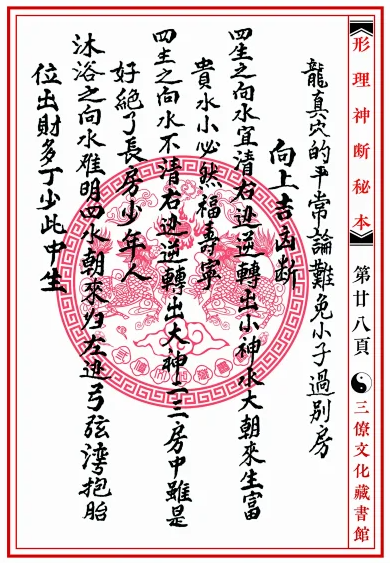 形理神断秘本
第廿八頁
三僚文化藏書館
龍真穴的平常論難免小子過別房
向上吉凶断
四生之向水宜清右边逆轉出小神水大朝來生富
貴水小必然福寿寧
四生之向水不清右边逆轉出大神二三房中雖是
好絕了長房少年人
沐浴之向水难明四水朝來归左边弓弦湾抱胎
位出財多丁少此中生